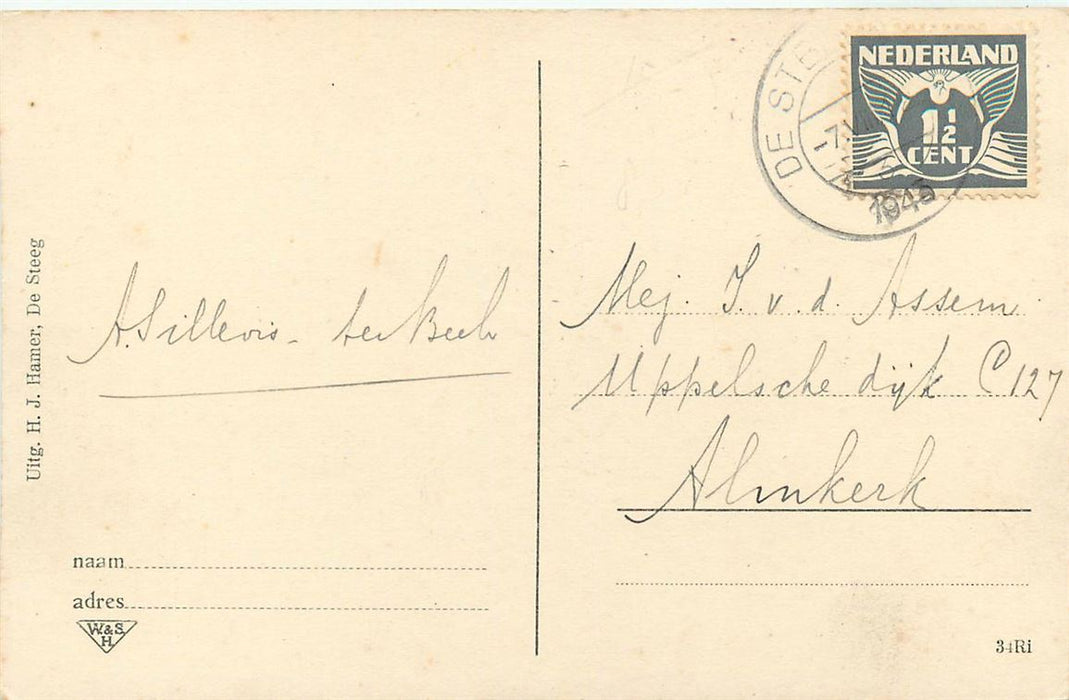 Uitg. H. J. Hamer, De Steeg
A. Sillevis - ter Beek
naam
adres
W. & S.
H.
DE STE
1943
NEDERLAND
1½
CENT
Mej. J. v. d. Assem
Uppelsche dijk C 127
Almkerk
34Ri